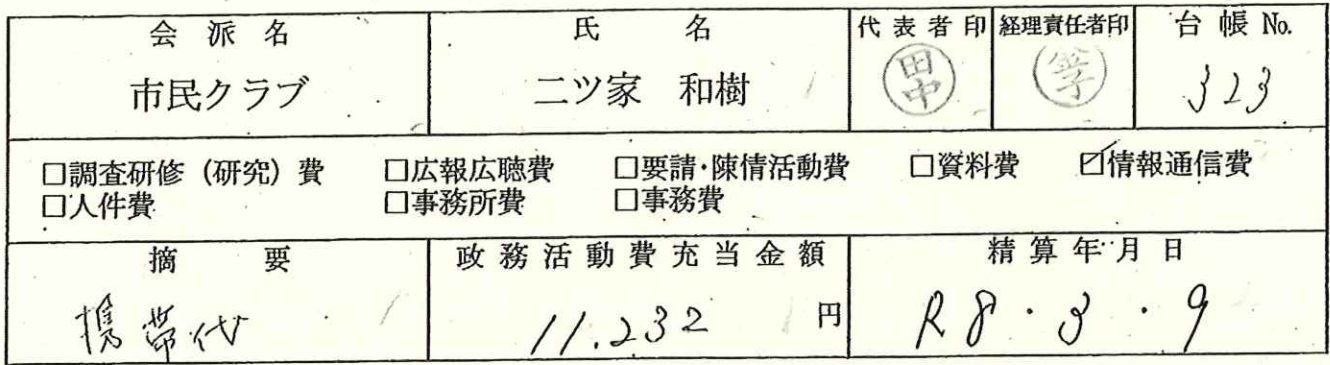 会派名 氏名 代表者印 経理責任者印 台帳No.
市民クラブ 二ツ家 和樹 田中 323
□調査研修（研究）費 □広報広聴費 □要請・陳情活動費 □資料費 ☑情報通信費
□人件費 □事務所費 □事務費
摘要 政務活動費充当金額 精算年月日
携帯代 11.232 円 R8・3・9